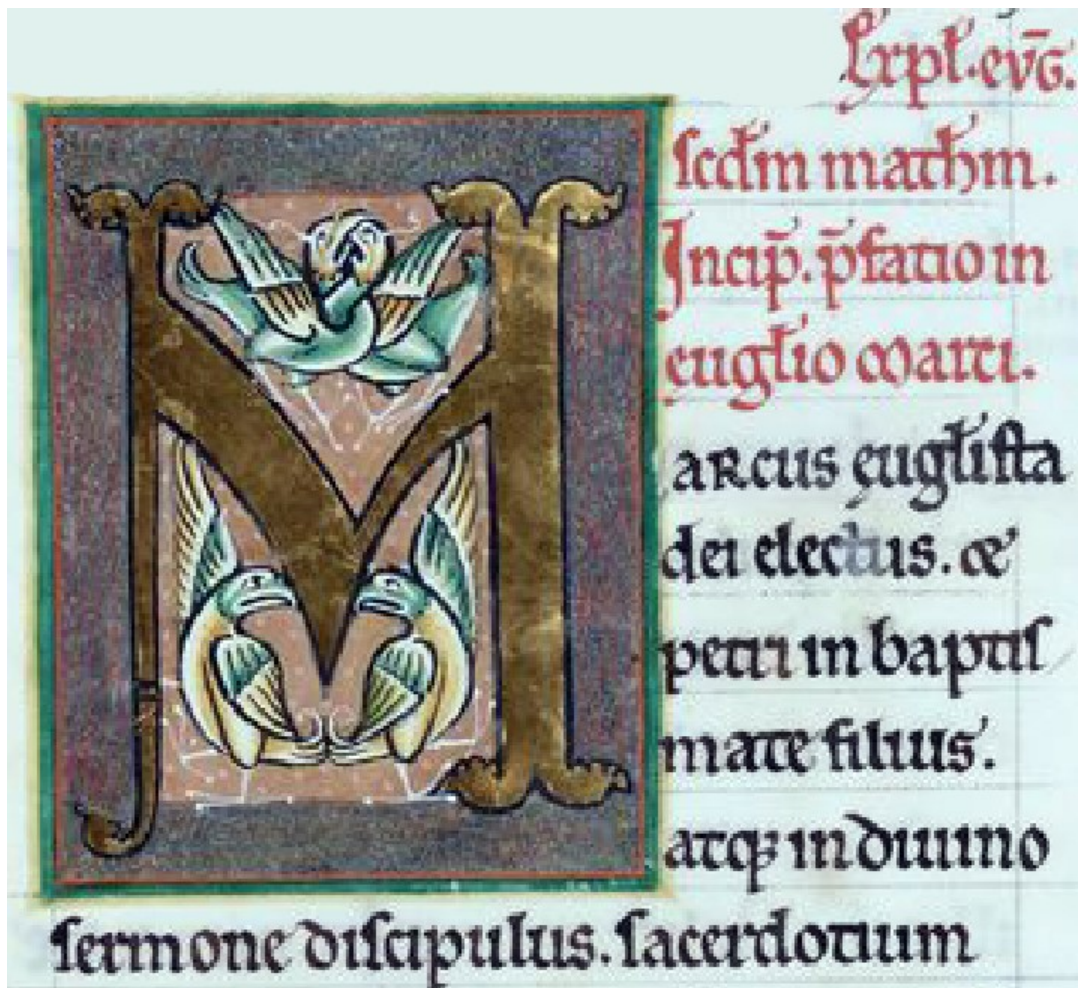 Expl̄. ev̄g.
scd̄m math̄m.
Incip̄. p̄fatio in
euḡlio marci.
Marcus euḡlista
dei electus. &
petri in baptis
mate filius.
atqꝫ in diuino
sermone discipulus. sacerdotium